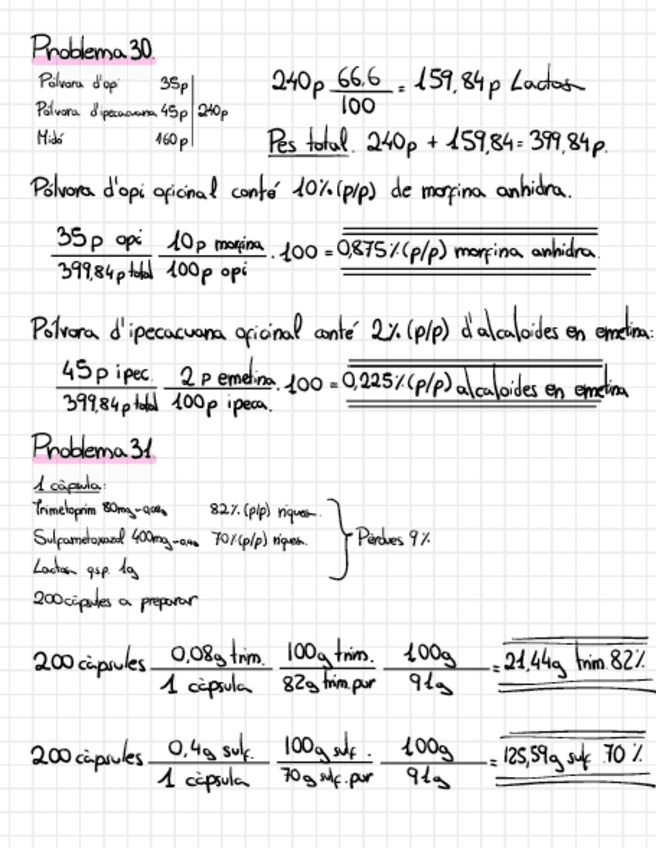 Problema 30.
Pólvora d'opi 35p
Pólvora d'ipecacuana 45p 240p
Midó 160p
240p 66.6/100 = 159,84p Lactosa
Pes total. 240p + 159,84 = 399,84p.
Pólvora d'opi oficinal conté 10% (p/p) de morfina anhidra.
35p opi/399,84p total 10p morfina/100p opi . 100 = 0,875% (p/p) morfina anhidra.
Pólvora d'ipecacuana oficinal conté 2% (p/p) d'alcaloides en emetina:
45p ipec./399,84p total 2p emetina/100p ipeca. . 100 = 0,225% (p/p) alcaloides en emetina
Problema 31.
1 càpsula:
Trimetoprim 80mg 82% (p/p) riquesa.
Sulfametoxazol 400mg 70% (p/p) riquesa. Pèrdues 9%
Lactosa qsp. 1g
200 càpsules a preparar
200 càpsules 0,08g trim./1 càpsula 100g trim./82g trim.pur 100g/91g = 21,44g trim 82%
200 càpsules 0,4g sulf./1 càpsula 100g sulf./70g sulf.pur 100g/91g = 125,59g sulf 70%